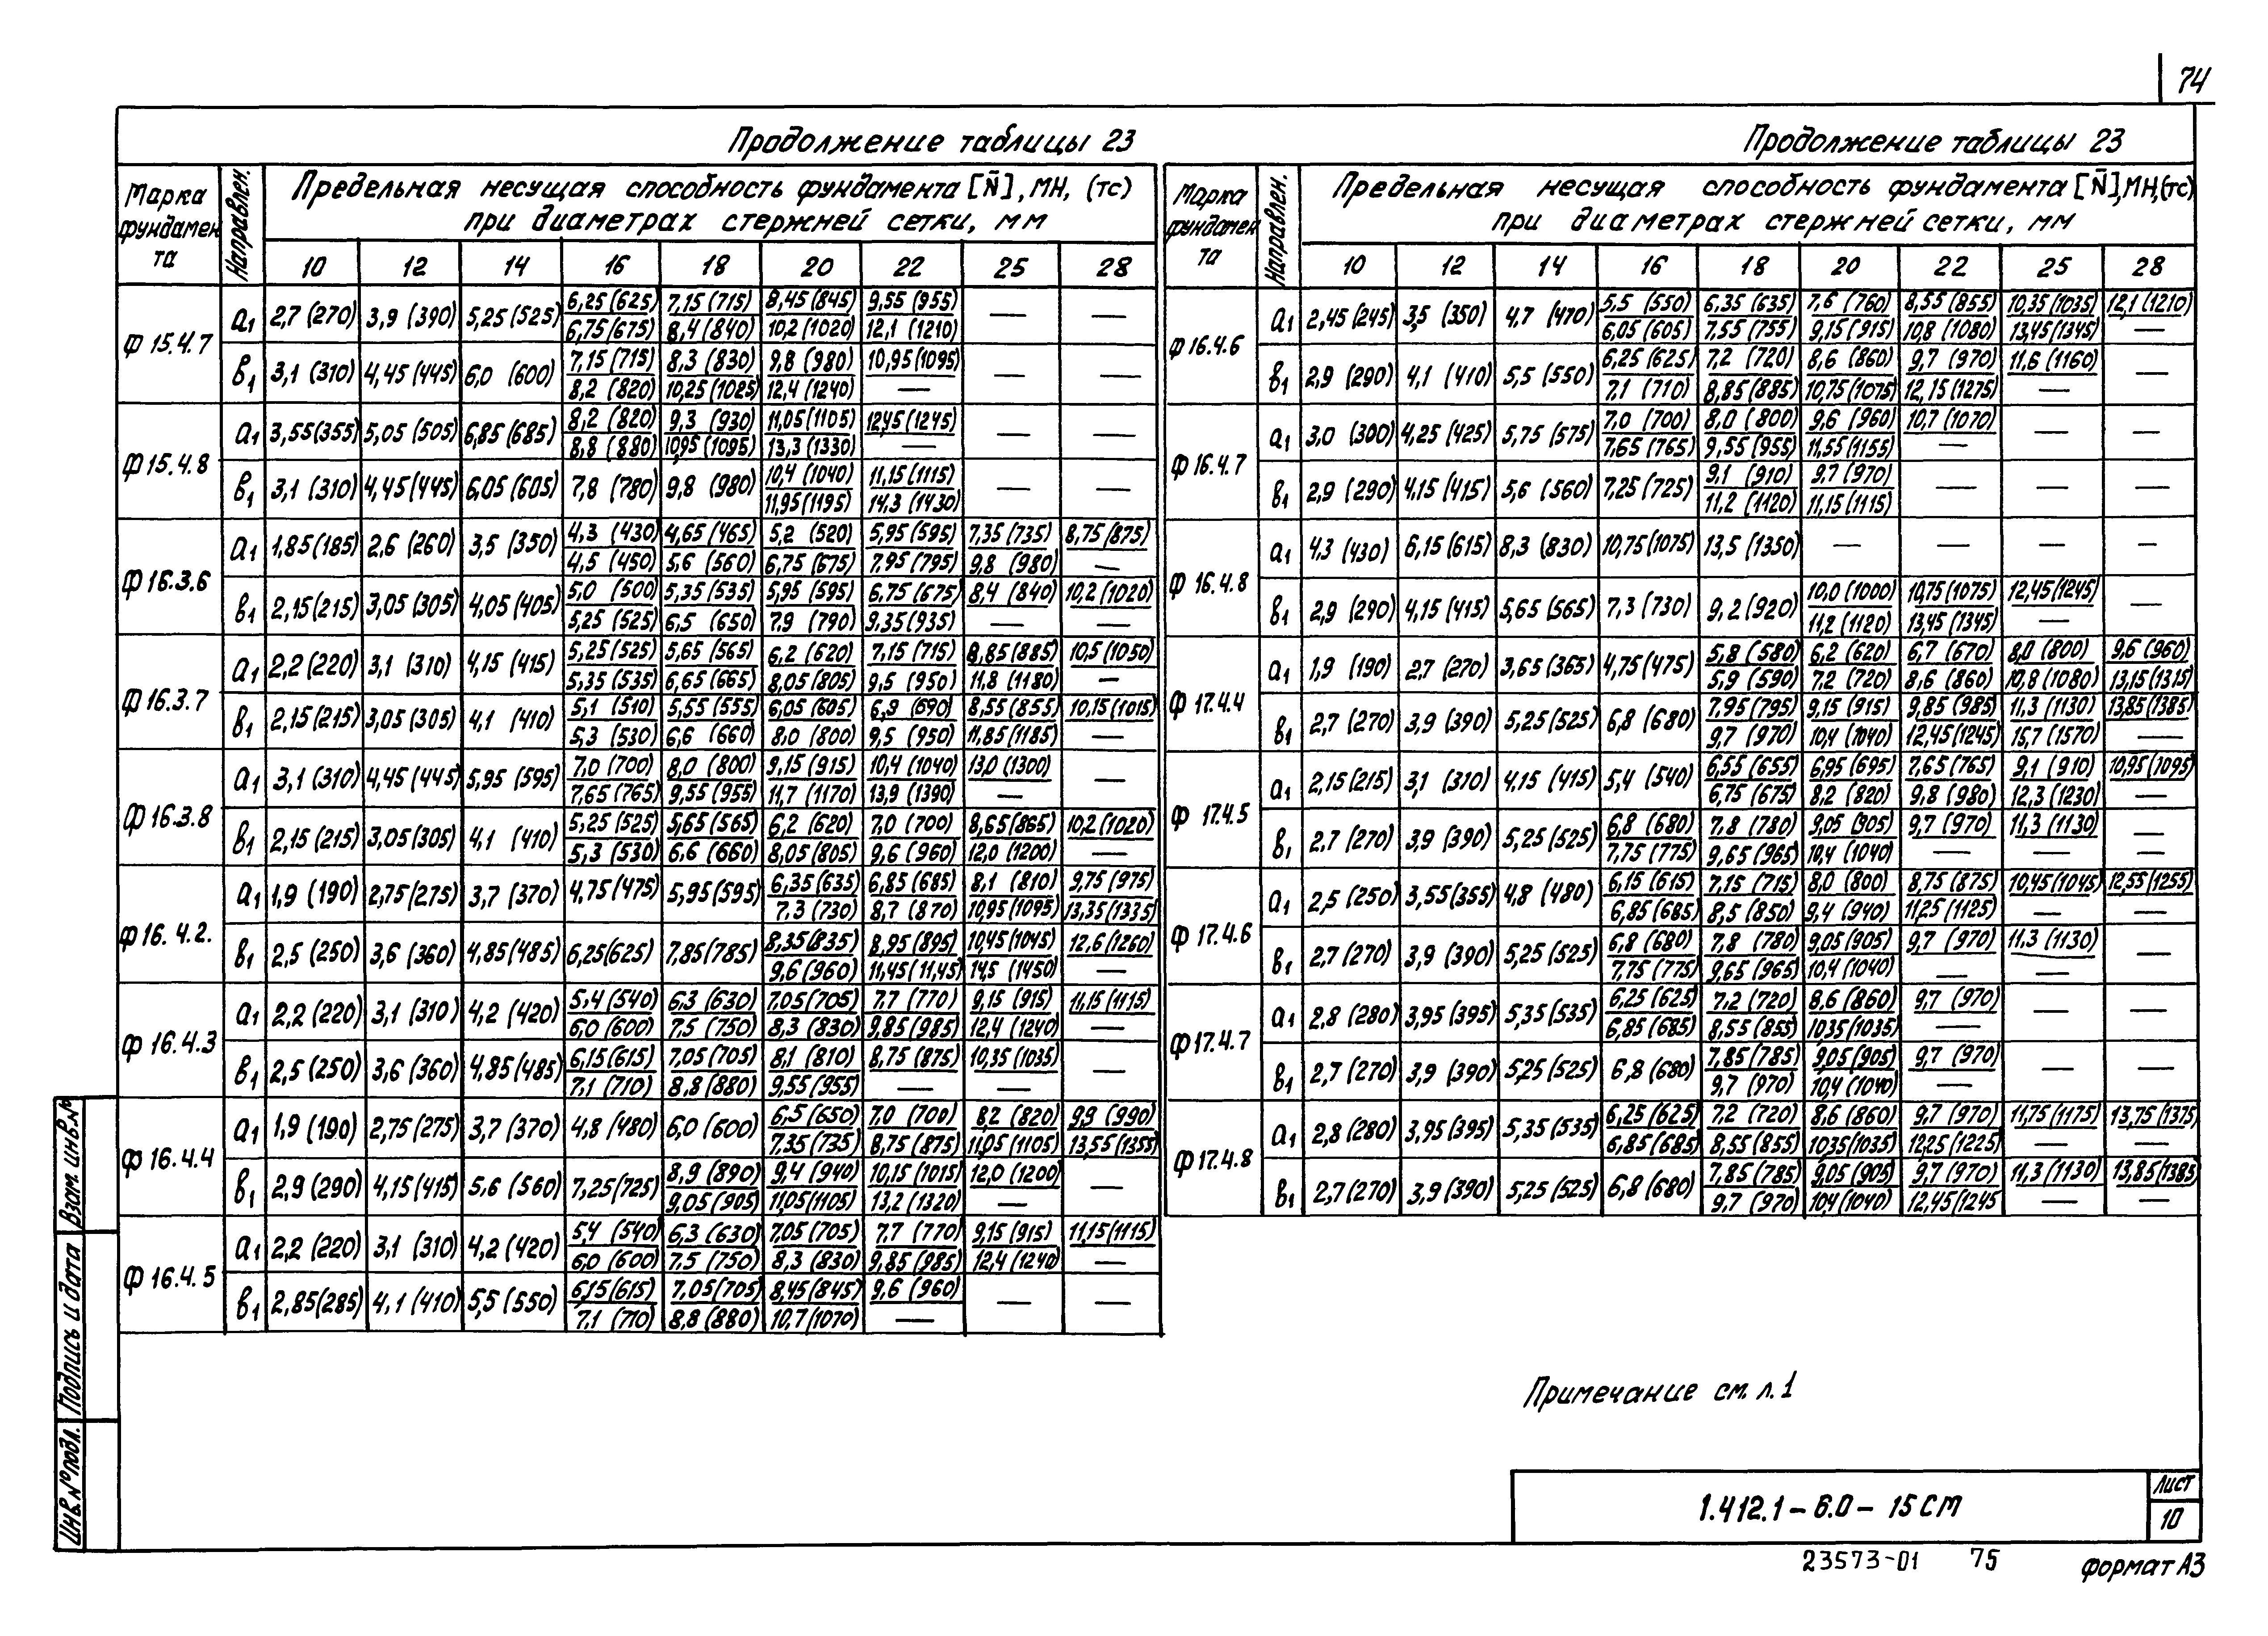 74
Продолжение таблицы 23
Марка фундамента | Направлен. | Предельная несущая способность фундамента [N̄], МН, (тс) при диаметрах стержней сетки, мм
10 | 12 | 14 | 16 | 18 | 20 | 22 | 25 | 28
Ф 15.4.7 | a1 | 2,7 (270) | 3,9 (390) | 5,25 (525) | 6,25 (625) / 6,75 (675) | 7,15 (715) / 8,4 (840) | 8,45 (845) / 10,2 (1020) | 9,55 (955) / 12,1 (1210) | — | —
в1 | 3,1 (310) | 4,45 (445) | 6,0 (600) | 7,15 (715) / 8,2 (820) | 8,3 (830) / 10,25 (1025) | 9,8 (980) / 12,4 (1240) | 10,95 (1095) / — | — | —
Ф 15.4.8 | a1 | 3,55 (355) | 5,05 (505) | 6,85 (685) | 8,2 (820) / 8,8 (880) | 9,3 (930) / 10,95 (1095) | 11,05 (1105) / 13,3 (1330) | 12,45 (1245) / — | — | —
в1 | 3,1 (310) | 4,45 (445) | 6,05 (605) | 7,8 (780) | 9,8 (980) | 10,4 (1040) / 11,95 (1195) | 11,15 (1115) / 14,3 (1430) | — | —
Ф 16.3.6 | a1 | 1,85 (185) | 2,6 (260) | 3,5 (350) | 4,3 (430) / 4,5 (450) | 4,65 (465) / 5,6 (560) | 5,2 (520) / 6,75 (675) | 5,95 (595) / 7,95 (795) | 7,35 (735) / 9,8 (980) | 8,75 (875) / —
в1 | 2,15 (215) | 3,05 (305) | 4,05 (405) | 5,0 (500) / 5,25 (525) | 5,35 (535) / 6,5 (650) | 5,95 (595) / 7,9 (790) | 6,75 (675) / 9,35 (935) | 8,4 (840) / — | 10,2 (1020) / —
Ф 16.3.7 | a1 | 2,2 (220) | 3,1 (310) | 4,15 (415) | 5,25 (525) / 5,35 (535) | 5,65 (565) / 6,65 (665) | 6,2 (620) / 8,05 (805) | 7,15 (715) / 9,5 (950) | 8,85 (885) / 11,8 (1180) | 10,5 (1050) / —
в1 | 2,15 (215) | 3,05 (305) | 4,1 (410) | 5,1 (510) / 5,3 (530) | 5,55 (555) / 6,6 (660) | 6,05 (605) / 8,0 (800) | 6,9 (690) / 9,5 (950) | 8,55 (855) / 11,85 (1185) | 10,15 (1015) / —
Ф 16.3.8 | a1 | 3,1 (310) | 4,45 (445) | 5,95 (595) | 7,0 (700) / 7,65 (765) | 8,0 (800) / 9,55 (955) | 9,15 (915) / 11,7 (1170) | 10,4 (1040) / 13,9 (1390) | 13,0 (1300) / — | —
в1 | 2,15 (215) | 3,05 (305) | 4,1 (410) | 5,25 (525) / 5,3 (530) | 5,65 (565) / 6,6 (660) | 6,2 (620) / 8,05 (805) | 7,0 (700) / 9,6 (960) | 8,65 (865) / 12,0 (1200) | 10,2 (1020) / —
Ф 16.4.2. | a1 | 1,9 (190) | 2,75 (275) | 3,7 (370) | 4,75 (475) | 5,95 (595) | 6,35 (635) / 7,3 (730) | 6,85 (685) / 8,7 (870) | 8,1 (810) / 10,95 (1095) | 9,75 (975) / 13,35 (1335)
в1 | 2,5 (250) | 3,6 (360) | 4,85 (485) | 6,25 (625) | 7,85 (785) | 8,35 (835) / 9,6 (960) | 8,95 (895) / 11,45 (11,45) | 10,45 (1045) / 14,5 (1450) | 12,6 (1260) / —
Ф 16.4.3 | a1 | 2,2 (220) | 3,1 (310) | 4,2 (420) | 5,4 (540) / 6,0 (600) | 6,3 (630) / 7,5 (750) | 7,05 (705) / 8,3 (830) | 7,7 (770) / 9,85 (985) | 9,15 (915) / 12,4 (1240) | 11,15 (1115) / —
в1 | 2,5 (250) | 3,6 (360) | 4,85 (485) | 6,15 (615) / 7,1 (710) | 7,05 (705) / 8,8 (880) | 8,1 (810) / 9,55 (955) | 8,75 (875) / — | 10,35 (1035) / — | —
Ф 16.4.4 | a1 | 1,9 (190) | 2,75 (275) | 3,7 (370) | 4,8 (480) | 6,0 (600) | 6,5 (650) / 7,35 (735) | 7,0 (700) / 8,75 (875) | 8,2 (820) / 11,05 (1105) | 9,9 (990) / 13,55 (1355)
в1 | 2,9 (290) | 4,15 (415) | 5,6 (560) | 7,25 (725) | 8,9 (890) / 9,05 (905) | 9,4 (940) / 11,05 (1105) | 10,15 (1015) / 13,2 (1320) | 12,0 (1200) / — | —
Ф 16.4.5 | a1 | 2,2 (220) | 3,1 (310) | 4,2 (420) | 5,4 (540) / 6,0 (600) | 6,3 (630) / 7,5 (750) | 7,05 (705) / 8,3 (830) | 7,7 (770) / 9,85 (985) | 9,15 (915) / 12,4 (1240) | 11,15 (1115) / —
в1 | 2,85 (285) | 4,1 (410) | 5,5 (550) | 6,15 (615) / 7,1 (710) | 7,05 (705) / 8,8 (880) | 8,45 (845) / 10,7 (1070) | 9,6 (960) / — | — | —
Продолжение таблицы 23
Марка фундамента | Направлен. | Предельная несущая способность фундамента [N̄], МН, (тс) при диаметрах стержней сетки, мм
10 | 12 | 14 | 16 | 18 | 20 | 22 | 25 | 28
Ф 16.4.6 | a1 | 2,45 (245) | 3,5 (350) | 4,7 (470) | 5,5 (550) / 6,05 (605) | 6,35 (635) / 7,55 (755) | 7,6 (760) / 9,15 (915) | 8,55 (855) / 10,8 (1080) | 10,35 (1035) / 13,45 (1345) | 12,1 (1210) / —
в1 | 2,9 (290) | 4,1 (410) | 5,5 (550) | 6,25 (625) / 7,1 (710) | 7,2 (720) / 8,85 (885) | 8,6 (860) / 10,75 (1075) | 9,7 (970) / 12,15 (1275) | 11,6 (1160) / — | —
Ф 16.4.7 | a1 | 3,0 (300) | 4,25 (425) | 5,75 (575) | 7,0 (700) / 7,65 (765) | 8,0 (800) / 9,55 (955) | 9,6 (960) / 11,55 (1155) | 10,7 (1070) / — | — | —
в1 | 2,9 (290) | 4,15 (415) | 5,6 (560) | 7,25 (725) | 9,1 (910) / 11,2 (1120) | 9,7 (970) / 11,15 (1115) | — | — | —
Ф 16.4.8 | a1 | 4,3 (430) | 6,15 (615) | 8,3 (830) | 10,75 (1075) | 13,5 (1350) | — | — | — | —
в1 | 2,9 (290) | 4,15 (415) | 5,65 (565) | 7,3 (730) | 9,2 (920) | 10,0 (1000) / 11,2 (1120) | 10,75 (1075) / 13,45 (1345) | 12,45 (1245) / — | —
Ф 17.4.4 | a1 | 1,9 (190) | 2,7 (270) | 3,65 (365) | 4,75 (475) | 5,8 (580) / 5,9 (590) | 6,2 (620) / 7,2 (720) | 6,7 (670) / 8,6 (860) | 8,0 (800) / 10,8 (1080) | 9,6 (960) / 13,15 (1315)
в1 | 2,7 (270) | 3,9 (390) | 5,25 (525) | 6,8 (680) | 7,95 (795) / 9,7 (970) | 9,15 (915) / 10,4 (1040) | 9,85 (985) / 12,45 (1245) | 11,3 (1130) / 15,7 (1570) | 13,85 (1385) / —
Ф 17.4.5 | a1 | 2,15 (215) | 3,1 (310) | 4,15 (415) | 5,4 (540) | 6,55 (655) / 6,75 (675) | 6,95 (695) / 8,2 (820) | 7,65 (765) / 9,8 (980) | 9,1 (910) / 12,3 (1230) | 10,95 (1095) / —
в1 | 2,7 (270) | 3,9 (390) | 5,25 (525) | 6,8 (680) / 7,75 (775) | 7,8 (780) / 9,65 (965) | 9,05 (905) / 10,4 (1040) | 9,7 (970) / — | 11,3 (1130) / — | — / —
Ф 17.4.6 | a1 | 2,5 (250) | 3,55 (355) | 4,8 (480) | 6,15 (615) / 6,85 (685) | 7,15 (715) / 8,5 (850) | 8,0 (800) / 9,4 (940) | 8,75 (875) / 11,25 (1125) | 10,45 (1045) / — | 12,55 (1255) / —
в1 | 2,7 (270) | 3,9 (390) | 5,25 (525) | 6,8 (680) / 7,75 (775) | 7,8 (780) / 9,65 (965) | 9,05 (905) / 10,4 (1040) | 9,7 (970) / — | 11,3 (1130) / — | —
Ф 17.4.7 | a1 | 2,8 (280) | 3,95 (395) | 5,35 (535) | 6,25 (625) / 6,85 (685) | 7,2 (720) / 8,55 (855) | 8,6 (860) / 10,35 (1035) | 9,7 (970) / — | — | —
в1 | 2,7 (270) | 3,9 (390) | 5,25 (525) | 6,8 (680) | 7,85 (785) / 9,7 (970) | 9,05 (905) / 10,4 (1040) | 9,7 (970) / — | — | —
Ф 17.4.8 | a1 | 2,8 (280) | 3,95 (395) | 5,35 (535) | 6,25 (625) / 6,85 (685) | 7,2 (720) / 8,55 (855) | 8,6 (860) / 10,35 (1035) | 9,7 (970) / 12,25 (1225) | 11,75 (1175) / — | 13,75 (1375 / —
в1 | 2,7 (270) | 3,9 (390) | 5,25 (525) | 6,8 (680) | 7,85 (785) / 9,7 (970) | 9,05 (905) / 10,4 (1040) | 9,7 (970) / 12,45 (1245 | 11,3 (1130) / — | 13,85 (1385) / —
Примечание см. л. 1
1.412.1 – 6.0 – 15 СМ
Лист
10
23573-01 75
формат А3
Взам. инв. №
Подпись и дата
Инв. № подл.